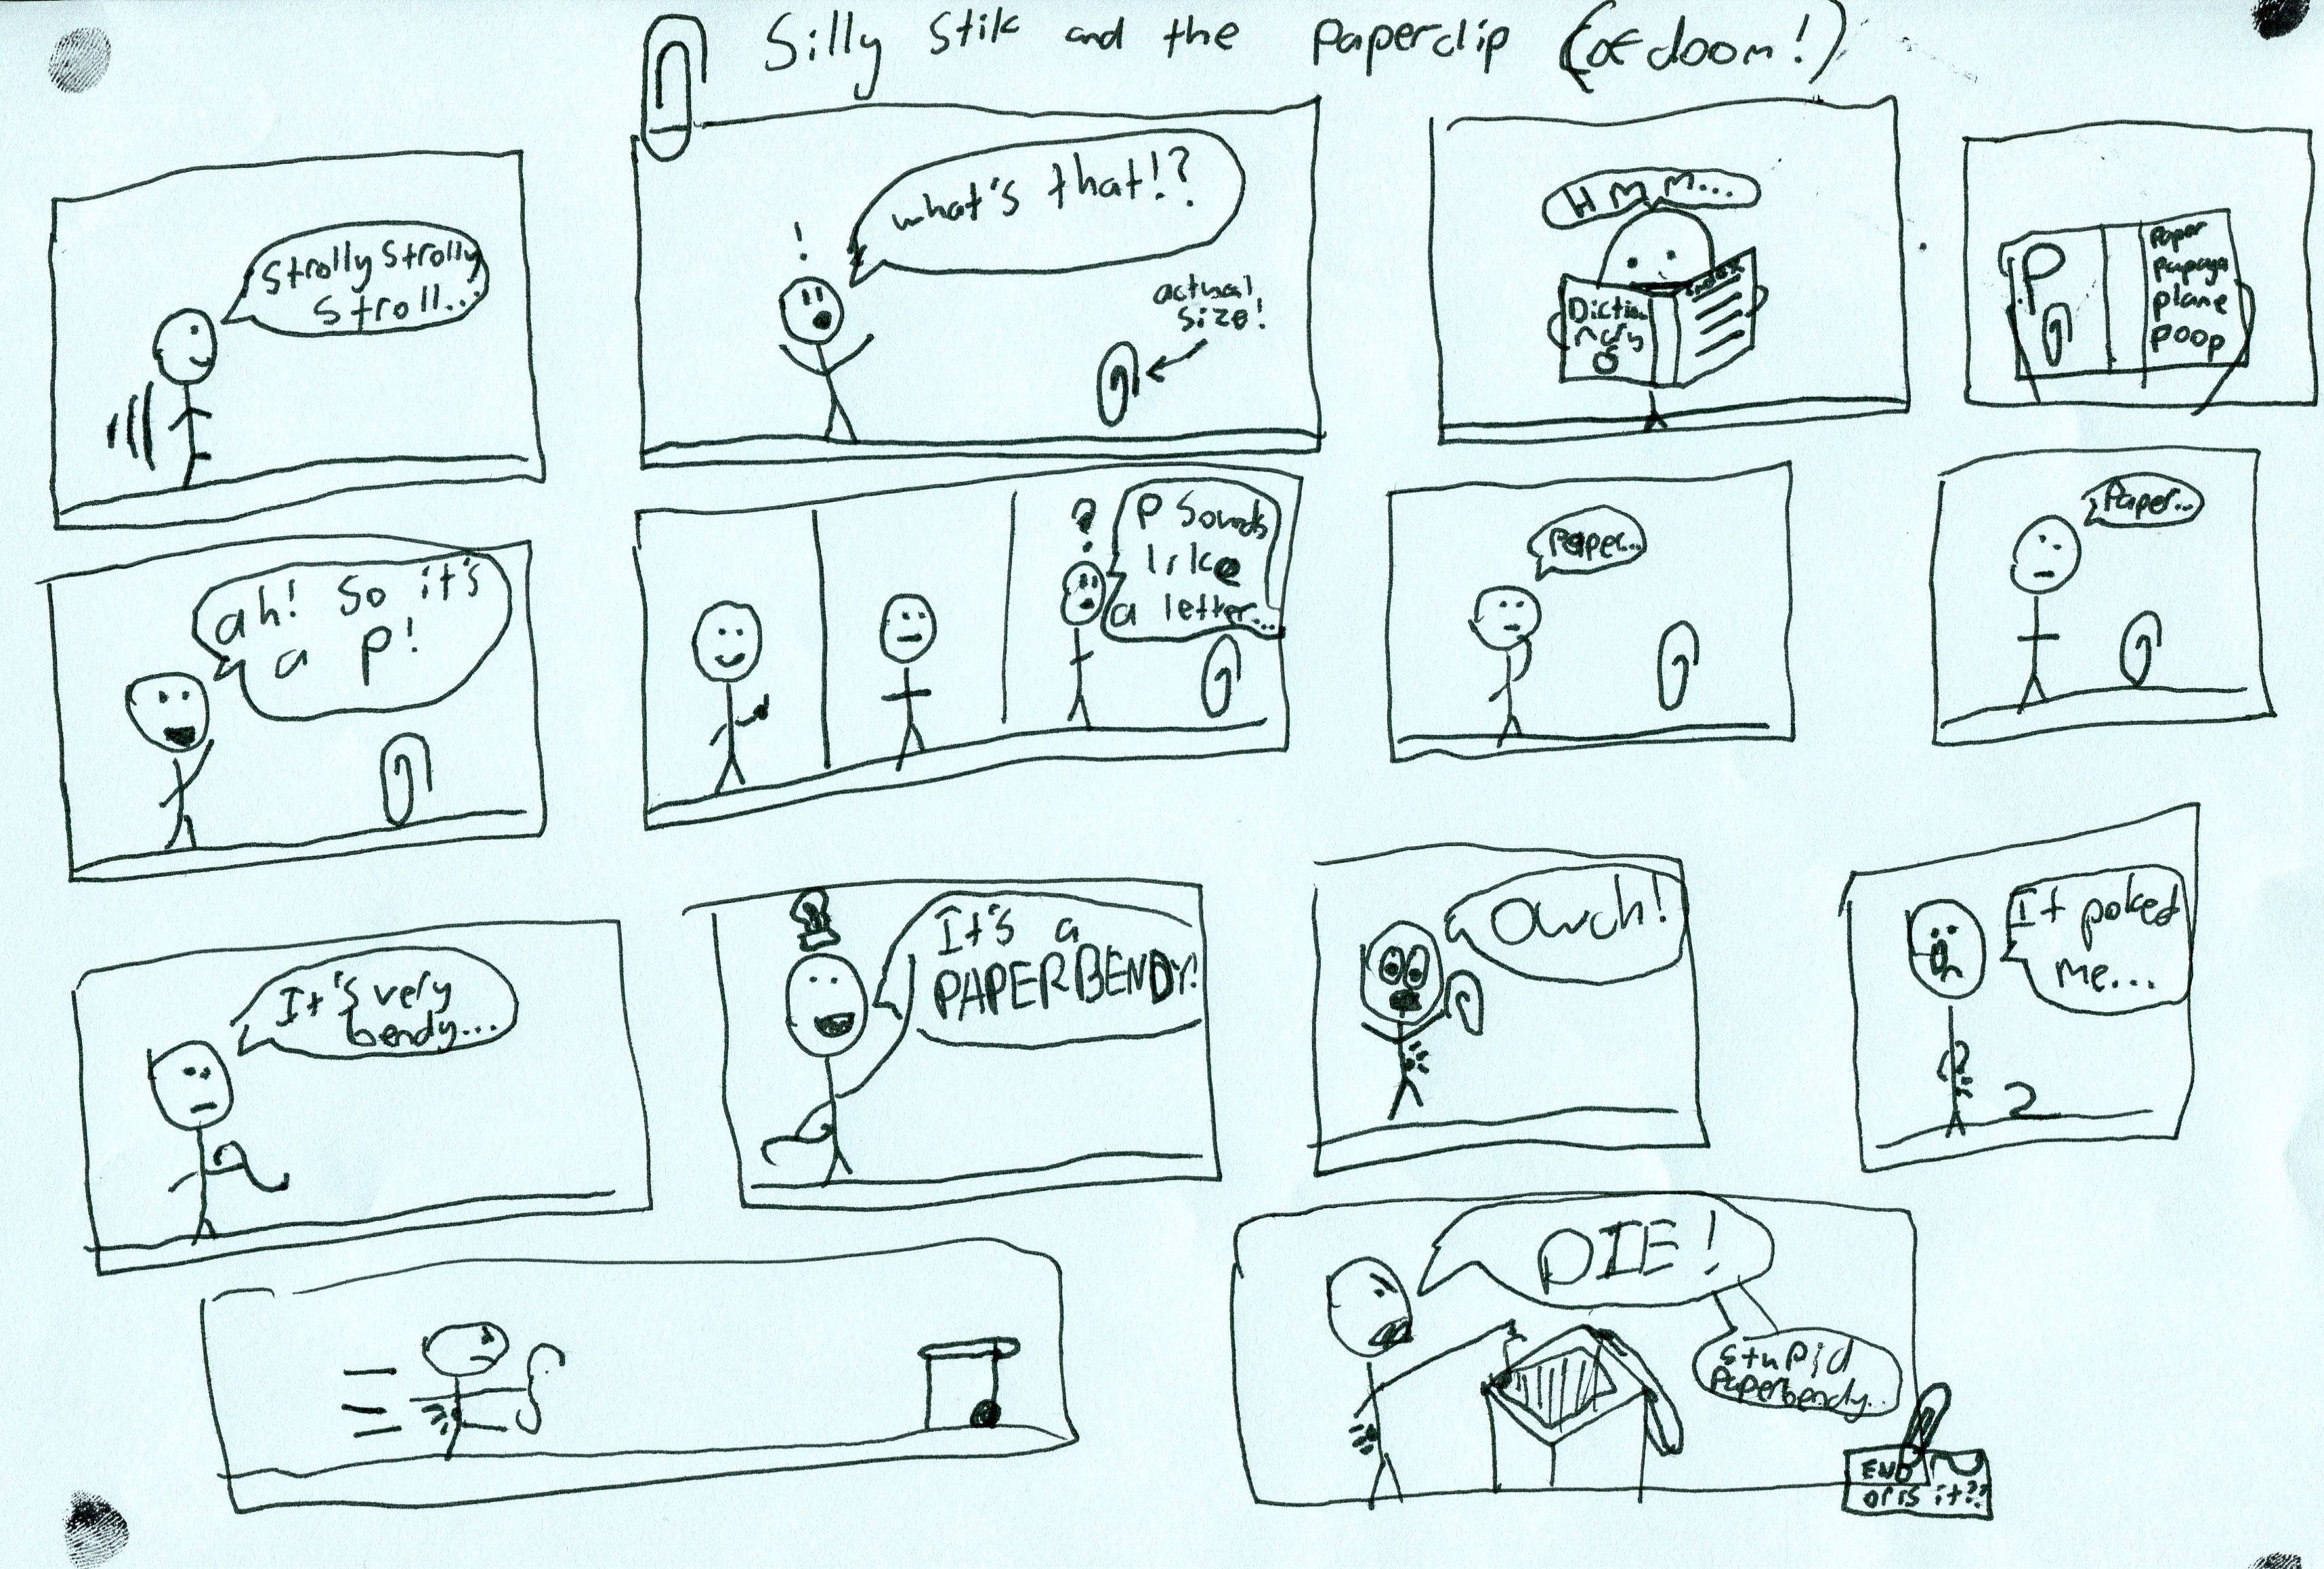 Silly Stik and the Paperclip (of doom!)
Strolly Strolly
Stroll...
!
what's that!?
actual
size!
HMM...
Diction
nary
INDEX
P
Paper
papaya
plane
poop
ah! So it's
a P!
?
P Sounds
like
a letter...
Paper...
Paper...
It's very
bendy...
It's a
PAPERBENDY!
Owch!
It poked
me...
DIE!
stupid
paperbendy...
END
or is it??